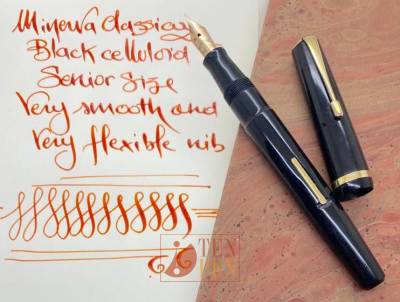 Minerva Classica
Black celluloid
Senior Size
Very smooth and
Very flexible nib
TEN
PEN